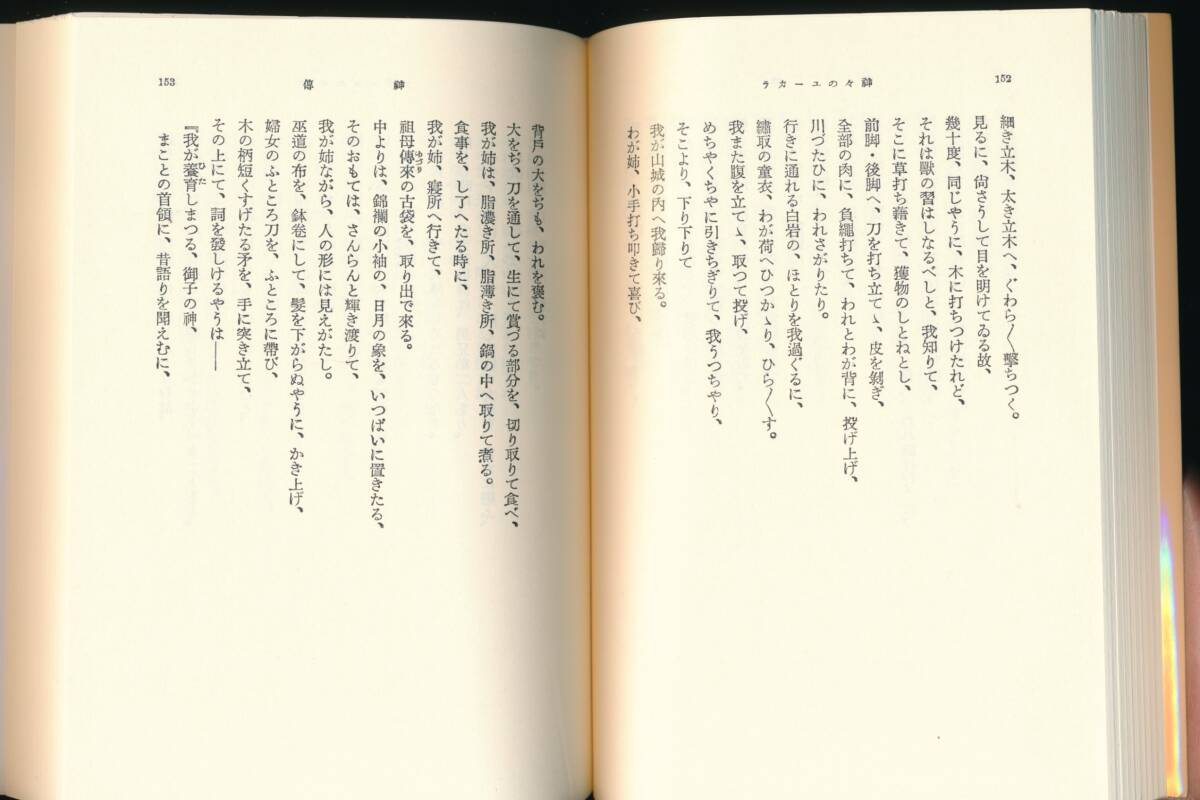 152
神々のユーカラ
細き立木、太き立木へ、ぐわら〱撃ちつく。
見るに、尙さうして目を明けてゐる故、
幾十度、同じやうに、木に打ちつけたれど、
それは獸の習はしなるべしと、我知りて、
そこに草打ち藉きて、獲物のしとねとし、
前脚・後脚へ、刀を打ち立てゝ、皮を剝ぎ、
全部の肉に、負繩打ちて、われとわが背に、投げ上げ、
川づたひに、われさがりたり。
行きに通れる白岩の、ほとりを我過ぐるに、
繡取の童衣、わが荷へひつかゝり、ひら〱す。
我また腹を立てゝ、取つて投げ、
めちやくちやに引きちぎりて、我うつちやり、
そこより、下り下りて
我が山城の內へ我歸り來る。
わが姉、小手打ち叩きて喜び、
神傳
153
背戶の大をぢも、われを褒む。
大をぢ、刀を通して、生にて賞づる部分を、切り取りて食べ、
我が姉は、脂濃き所、脂薄き所、鍋の中へ取りて煮る。
食事を、し了へたる時に、
我が姉、寢所へ行きて、
祖母傳來の古袋を、取り出で來る。
中よりは、錦襴の小袖の、日月の象を、いつぱいに置きたる、
そのおもては、さんらんと輝き渡りて、
我が姉ながら、人の形には見えがたし。
巫道の布を、鉢卷にして、髮を下がらぬやうに、かき上げ、
婦女のふところ刀を、ふところに帶び、
木の柄短くすげたる矛を、手に突き立て、
その上にて、詞を發しけるやうは──
『我が養育しまつる、御子の神、
まことの首領に、昔語りを聞えむに、